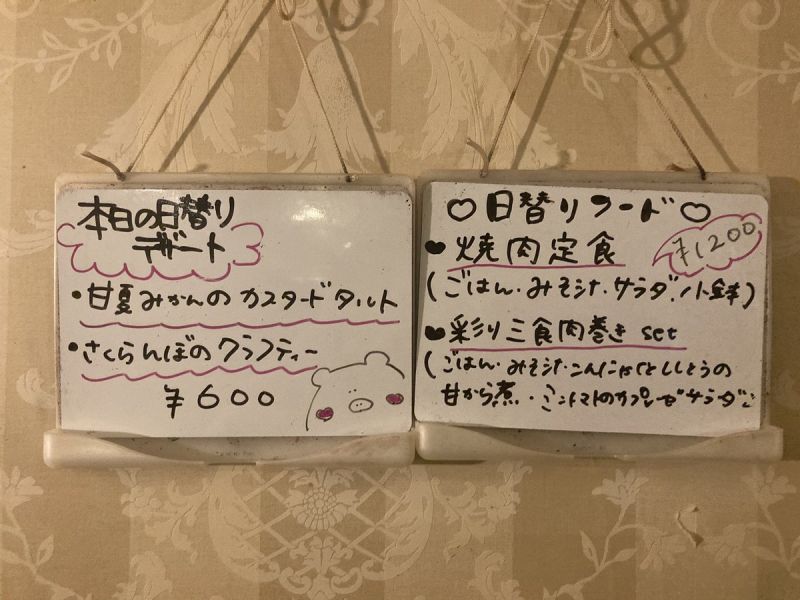 本日の日替り
デザート
・甘夏みかんのカスタードタルト
・さくらんぼのクラフティー
¥600
♡日替りフード♡
♥焼肉定食
¥1200
(ごはん・みそ汁・サラダ・小鉢)
♥彩り三食肉巻き set
(ごはん・みそ汁・こんにゃくとししとうの
甘から煮・ミニトマトのカプレーゼサラダ)